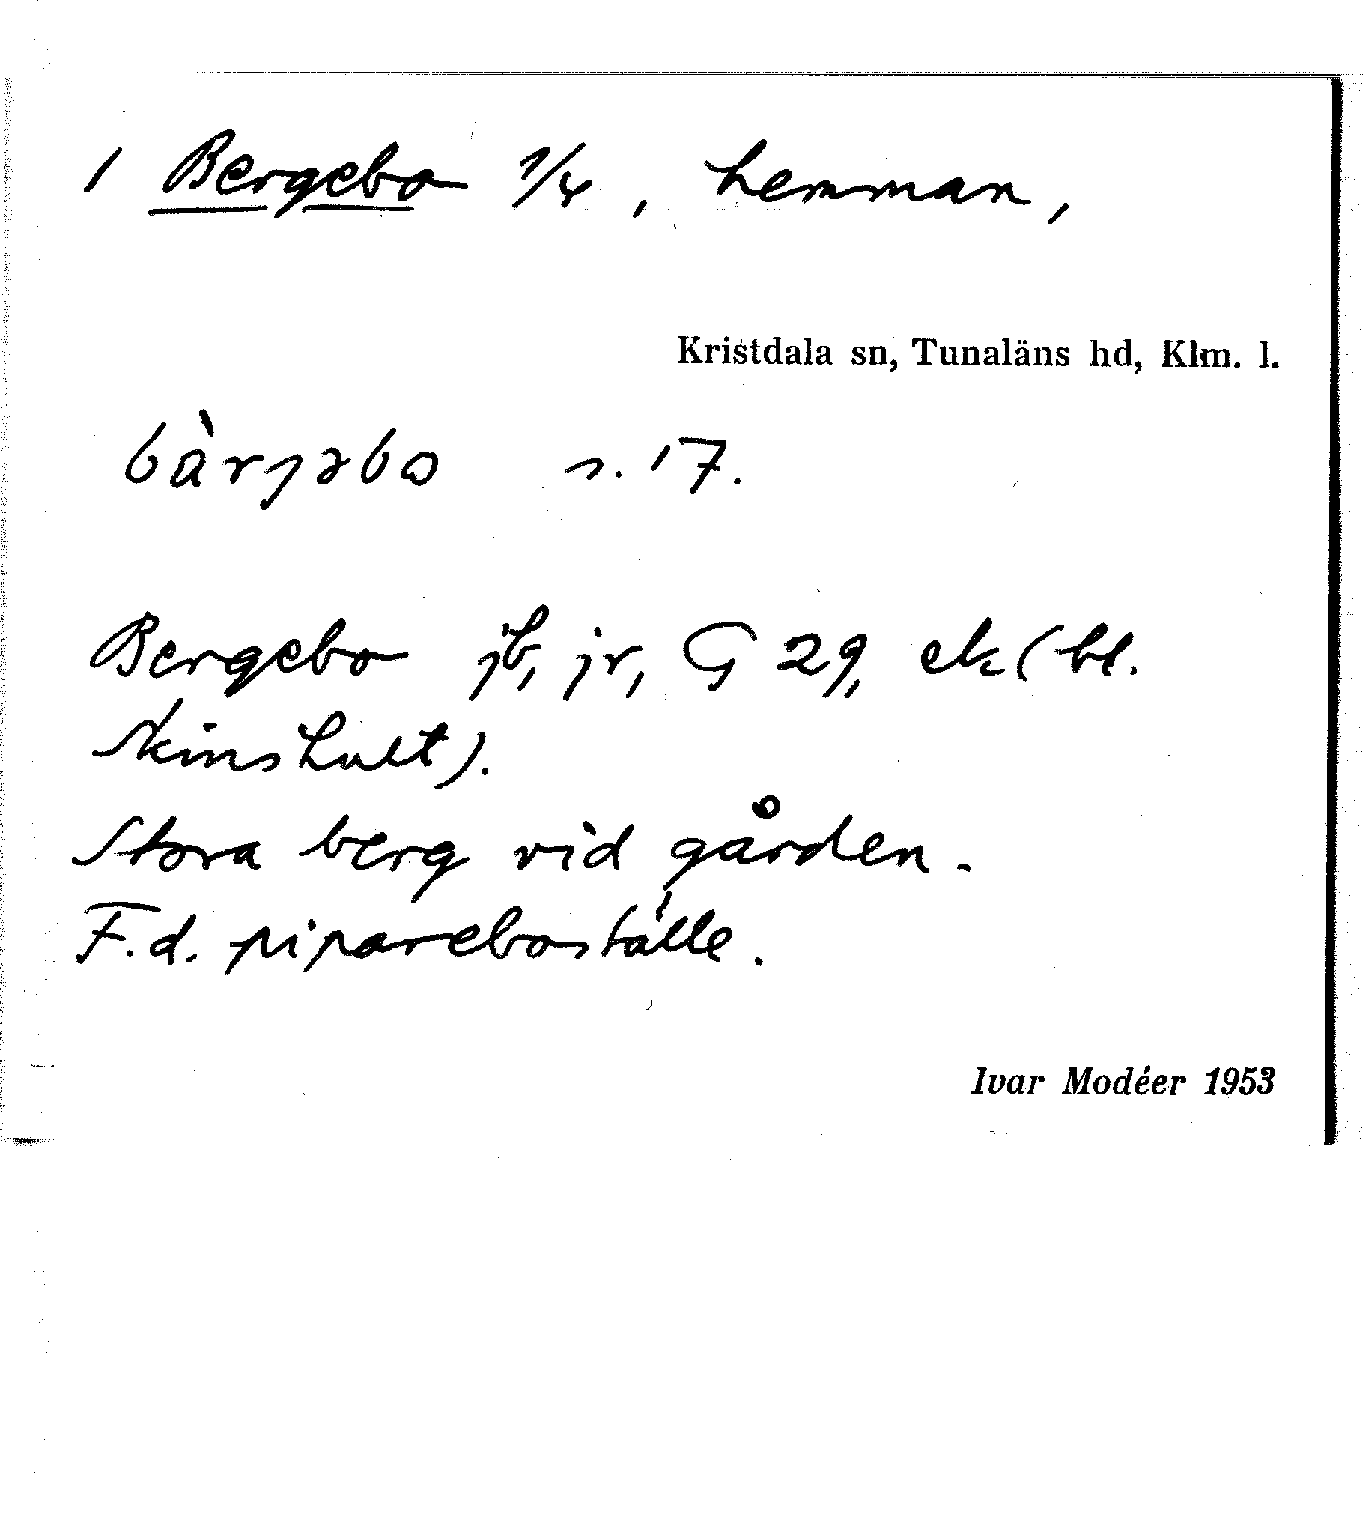 1 Bergebo 1/4, hemman,
Kristdala sn, Tunaläns hd, Klm. l.
bàrjəbo s. 17.
Bergebo jb, jr, G 29, ek (bl.
Skinshult).
Stora berg vid gården.
F.d. pipareboställe.
Ivar Modéer 1953